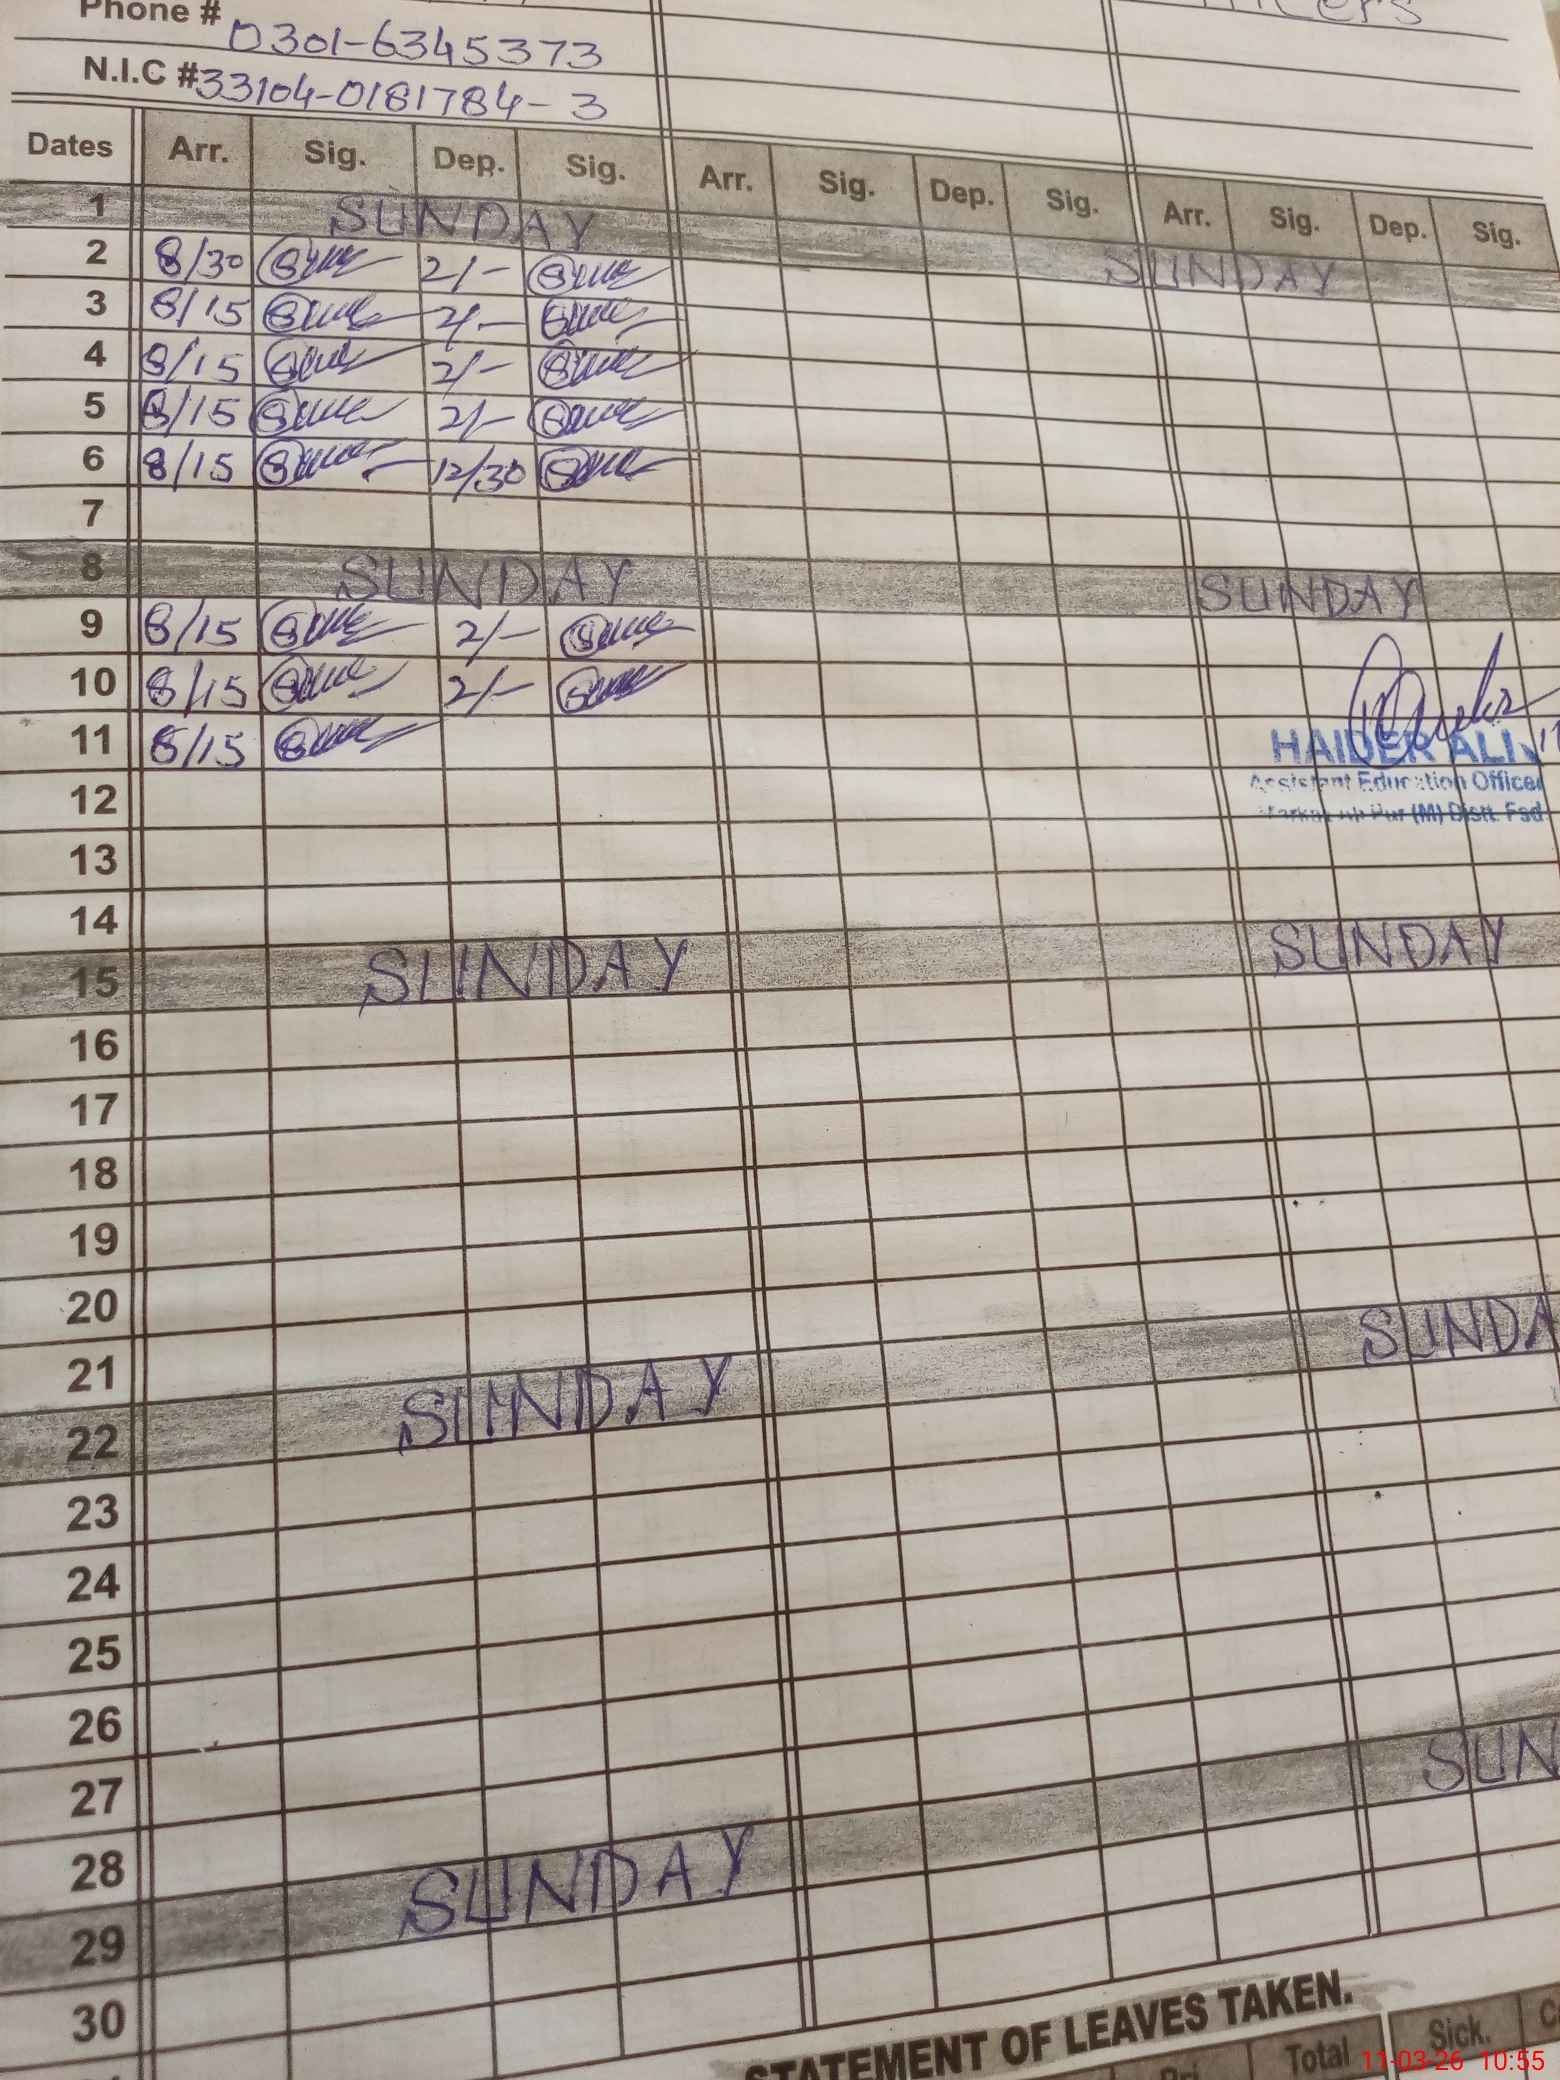 Phone # 0301-6345373
N.I.C # 33104-0181784-3
Dates Arr. Sig. Dep. Sig. Arr. Sig. Dep. Sig. Arr. Sig. Dep. Sig.
1 SUNDAY SUNDAY
2 8/30 2/-
3 8/15 2/-
4 8/15 2/-
5 8/15 2/-
6 8/15 12/30
7
8 SUNDAY SUNDAY
9 8/15 2/-
10 8/15 2/-
11 8/15
HAIDER ALI
Assistant Education Officer
(M) Distt. Fsd
12
13
14
15 SUNDAY SUNDAY
16
17
18
19
20
21
22 SUNDAY SUNDA
23
24
25
26
27
28
29 SUNDAY SUN
30
STATEMENT OF LEAVES TAKEN.
Total Sick.
11-03-26 10:55